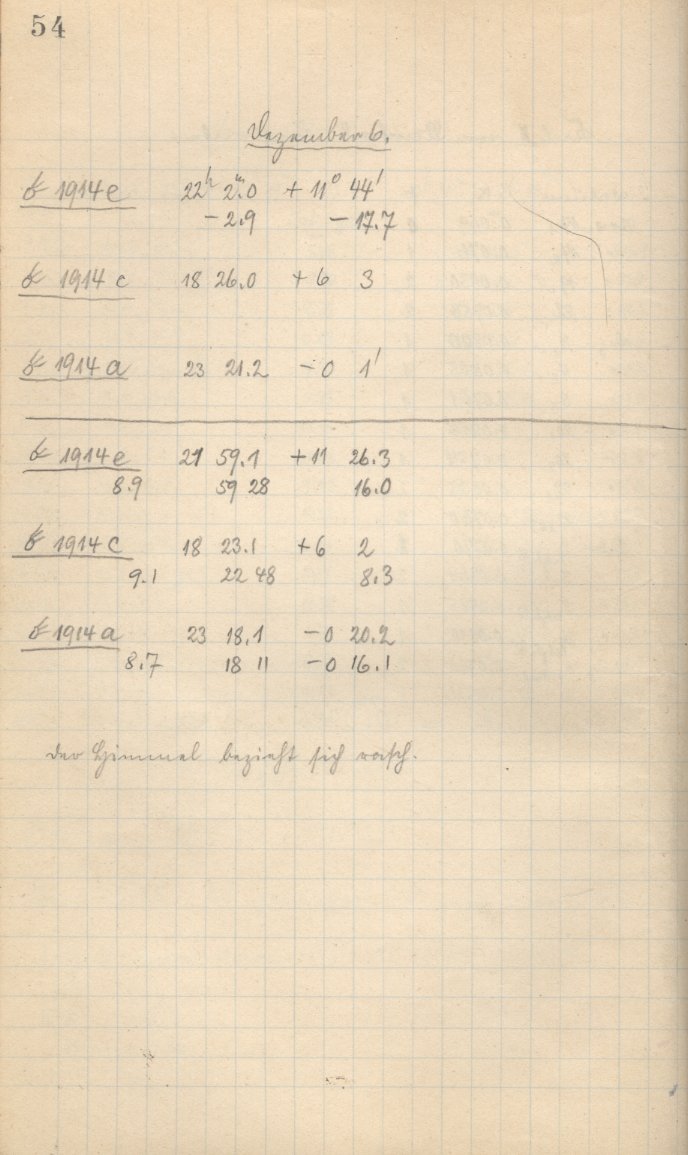 54
Dezember 6.
☄ 1914e 22h 2m.0 + 11° 44'
- 2.9 - 17.7
☄ 1914 c 18 26.0 + 6 3
☄ 1914 a 23 21.2 - 0 1'
☄ 1914e 21 59.1 + 11 26.3
8.9 59 28 16.0
☄ 1914c 18 23.1 + 6 2
9.1 22 48 8.3
☄ 1914a 23 18.1 - 0 20.2
8.7 18 11 - 0 16.1
Der Himmel bezieht sich rasch.